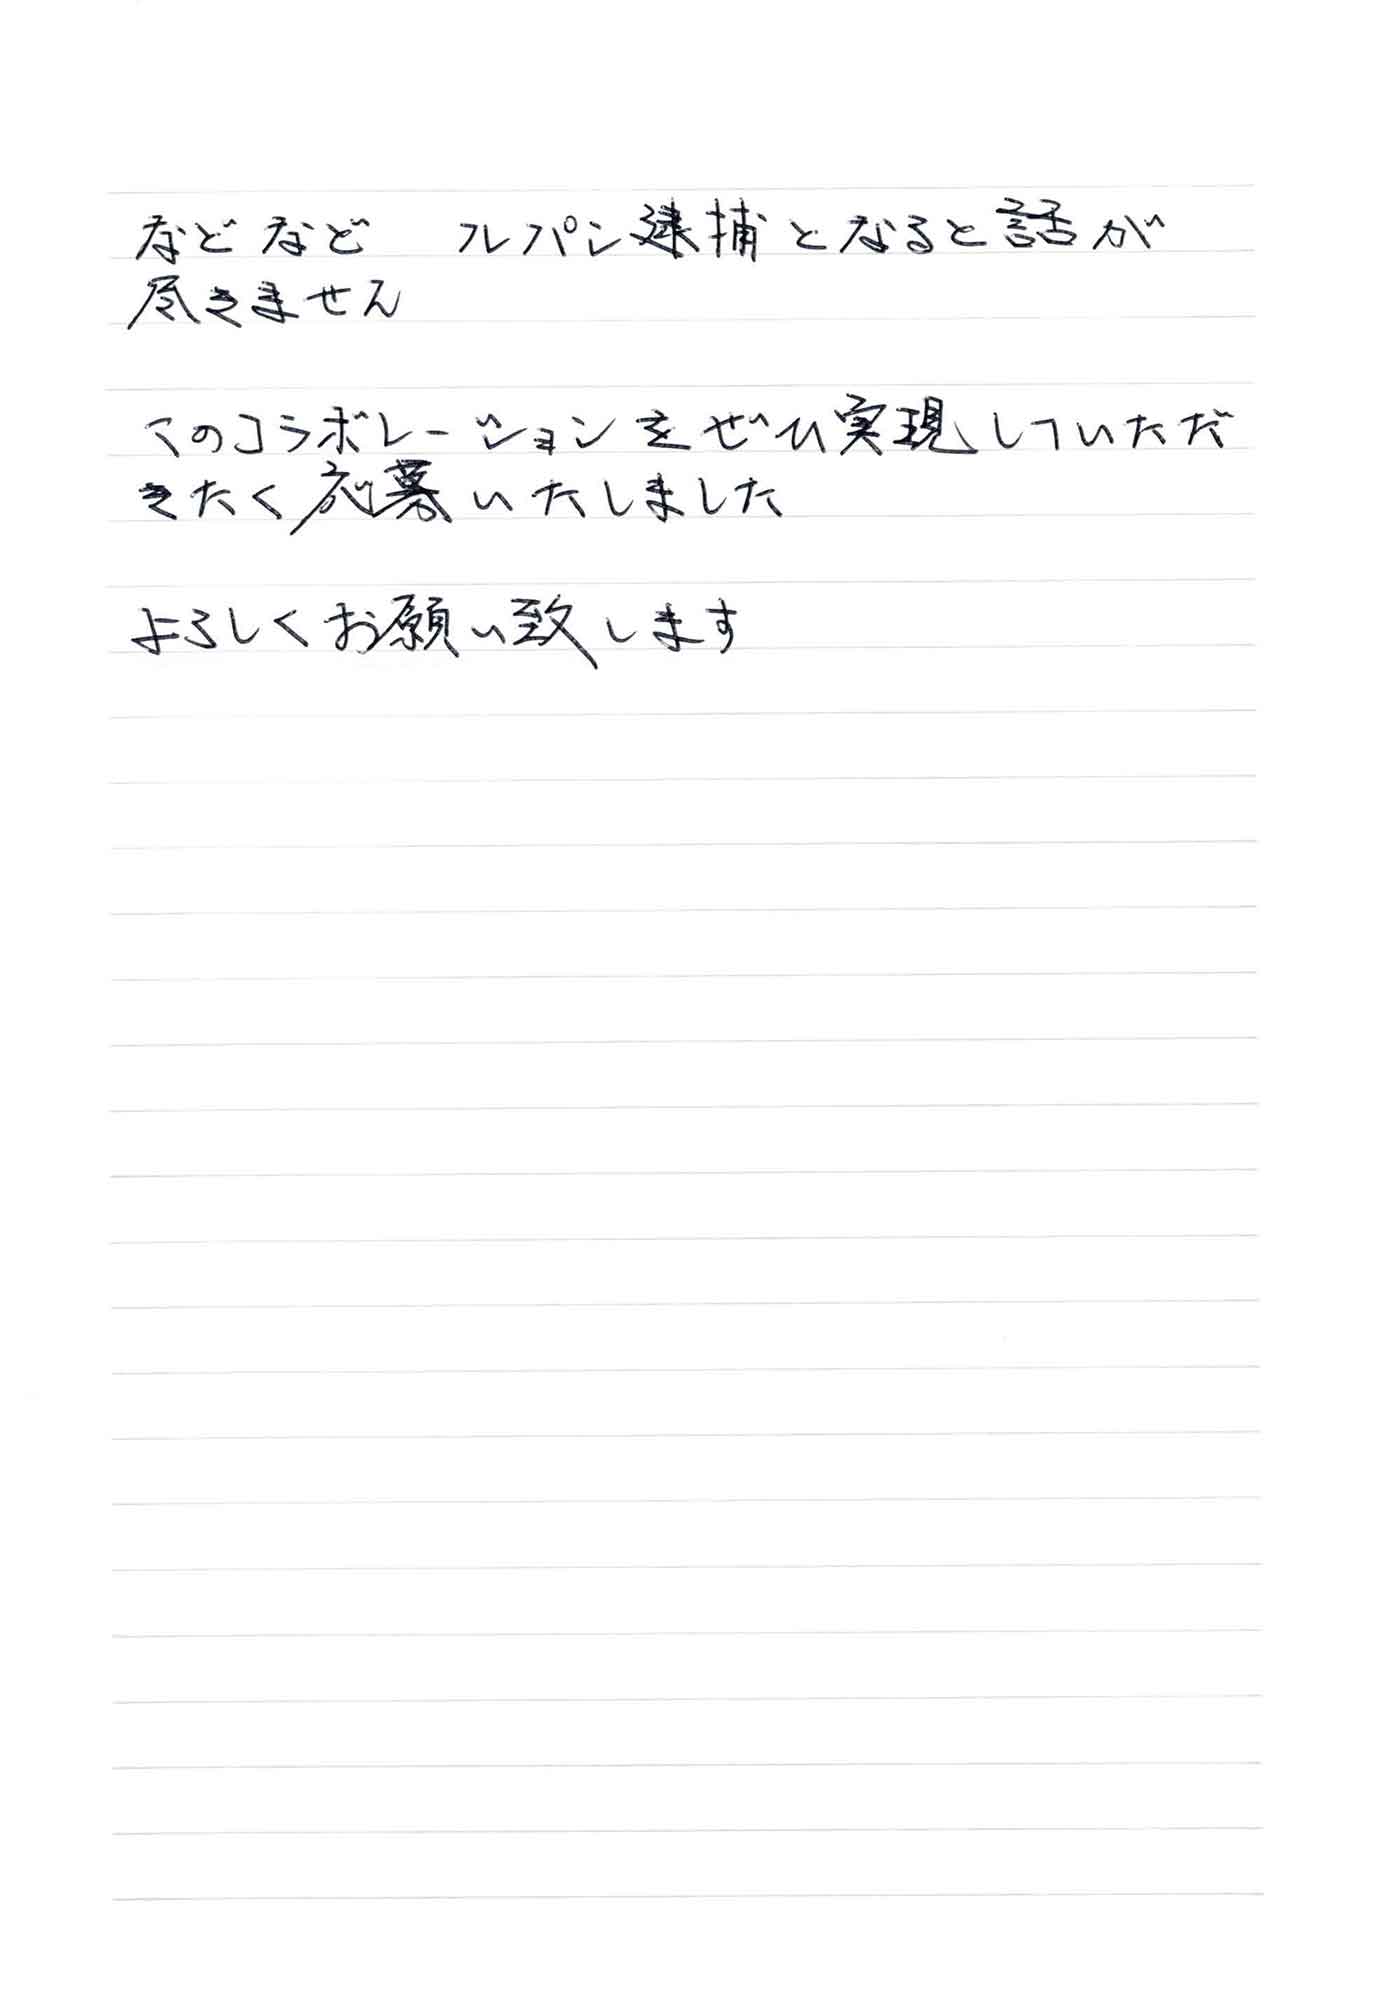 などなど　ルパン逮捕となると話が
尽きません
このコラボレーションをぜひ実現していただ
きたく応募いたしました
よろしくお願い致します